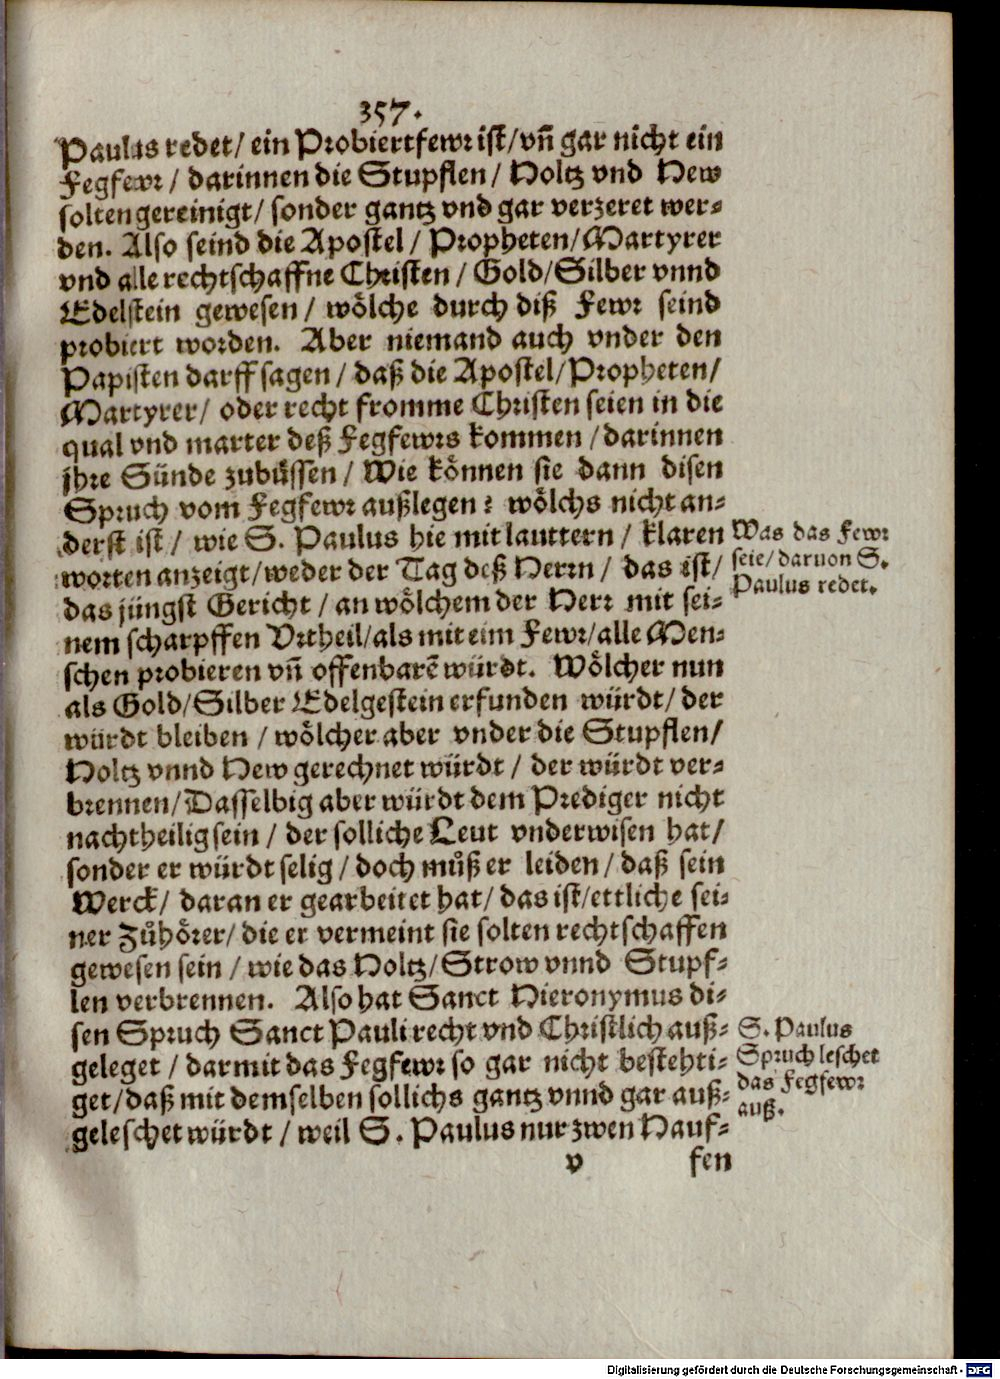 357.
Paulus redet/ ein Probiertfewr ist/ vñ gar nicht ein
Fegfewr / darinnen die Stupflen/ Holtz vnd Hew
solten gereinigt/ sonder gantz vnd gar verzeret wer⸗
den. Also seind die Apostel / Propheten/ Martyrer
vnd alle rechtschaffne Christen / Gold/ Silber vnnd
Edelstein gewesen / wölche durch diß Fewr seind
probiert worden. Aber niemand auch vnder den
Papisten darff sagen / daß die Apostel/ Propheten/
Martyrer/ oder recht fromme Christen seien in die
qual vnd marter deß Fegfewrs kommen / darinnen
jhre Sünde zubüssen / Wie können sie dann disen
Spruch vom Fegfewr außlegen? wölchs nicht an⸗
derst ist / wie S. Paulus hie mit lauttern / klaren
worten anzeigt/ weder der Tag deß Herrn / das ist/
das jüngst Gericht / an wölchem der Herr mit sei⸗
nem scharpffen Vrtheil/ als mit eim Fewr/ alle Men⸗
schen probieren vñ offenbarẽ würdt. Wölcher nun
als Gold/ Silber Edelgestein erfunden würdt/ der
würdt bleiben / wölcher aber vnder die Stupflen/
Holtz vnnd Hew gerechnet würdt / der würdt ver⸗
brennen/ Dasselbig aber würdt dem Prediger nicht
nachtheilig sein / der solliche Leut vnderwisen hat/
sonder er würdt selig / doch můß er leiden / daß sein
Werck/ daran er gearbeitet hat/ das ist/ ettliche sei⸗
ner Zůhörer/ die er vermeint sie solten rechtschaffen
gewesen sein / wie das Holtz/ Strow vnnd Stupf⸗
len verbrennen. Also hat Sanct Hieronymus di⸗
sen Spruch Sanct Pauli recht vnd Christlich auß⸗
geleget / darmit das Fegfewr so gar nicht bestehti⸗
get/ daß mit demselben sollichs gantz vnnd gar auß⸗
geleschet würdt / weil S. Paulus nur zwen Hauf⸗
v fen
Was das Fewr
seie/ daruon S.
Paulus redet.
S. Paulus
Spruch leschet
das Fegfewr
auß.
Digitalisierung gefördert durch die Deutsche Forschungsgemeinschaft - DFG